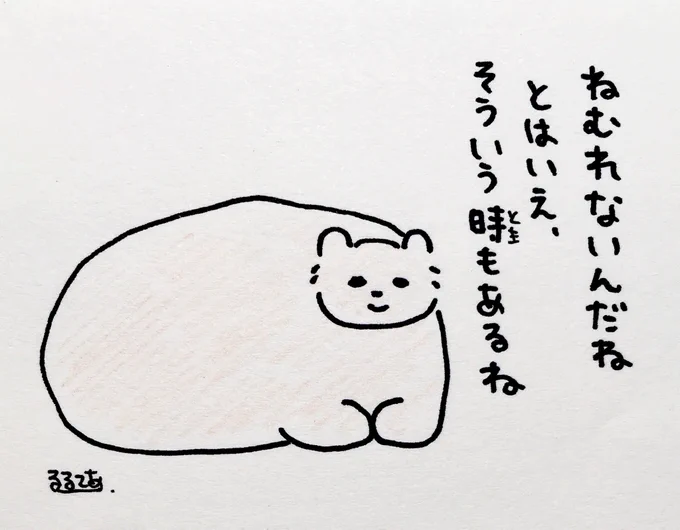 ねむれないんだね
とはいえ、
そういう時もあるね
とき
るるてあ.